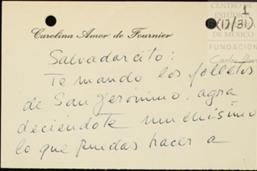 1
(17/31)
Carolina Amor de Fournier
FUNDACIÓN
Salvadorcito:
Te mando los folletos
de San Jerónimo, agra
deciéndote muchísimo
lo que puedas hacer a